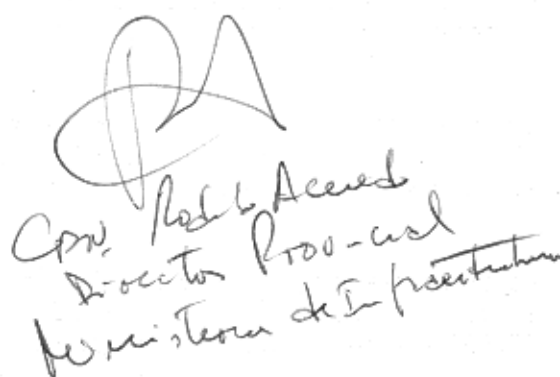 CPN. Rodolfo Acevedo
Director Provincial
Ministerio de Infraestructura